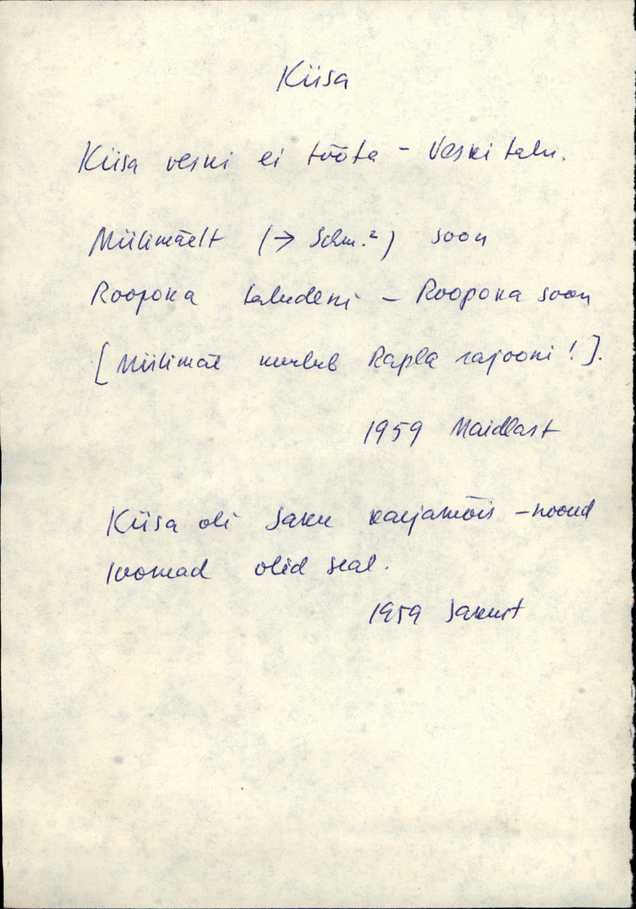 Kiisa
Kiisa veski ei tööta - Veski talu.
Müilimäelt (→ Schm.²) soon
Roopoka taludeni - Roopoka soon
[Müilimäe kuulub Rapla rajooni!].
1959 Maidlast
Kiisa oli Saku karjamõis - noored
loomad olid seal.
1959 Sakust